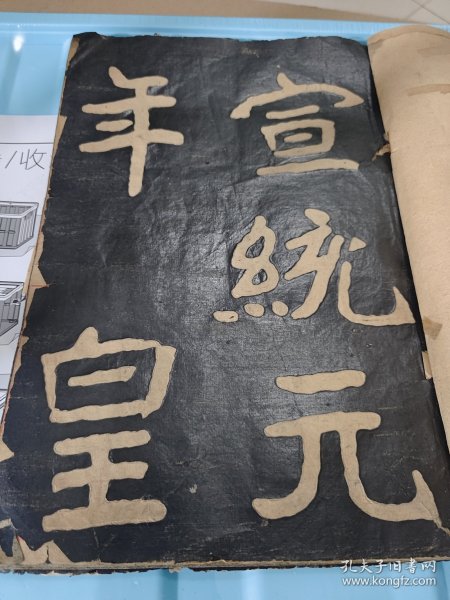 宣統元
年皇
/收
孔夫子旧书网
www.kongfz.com